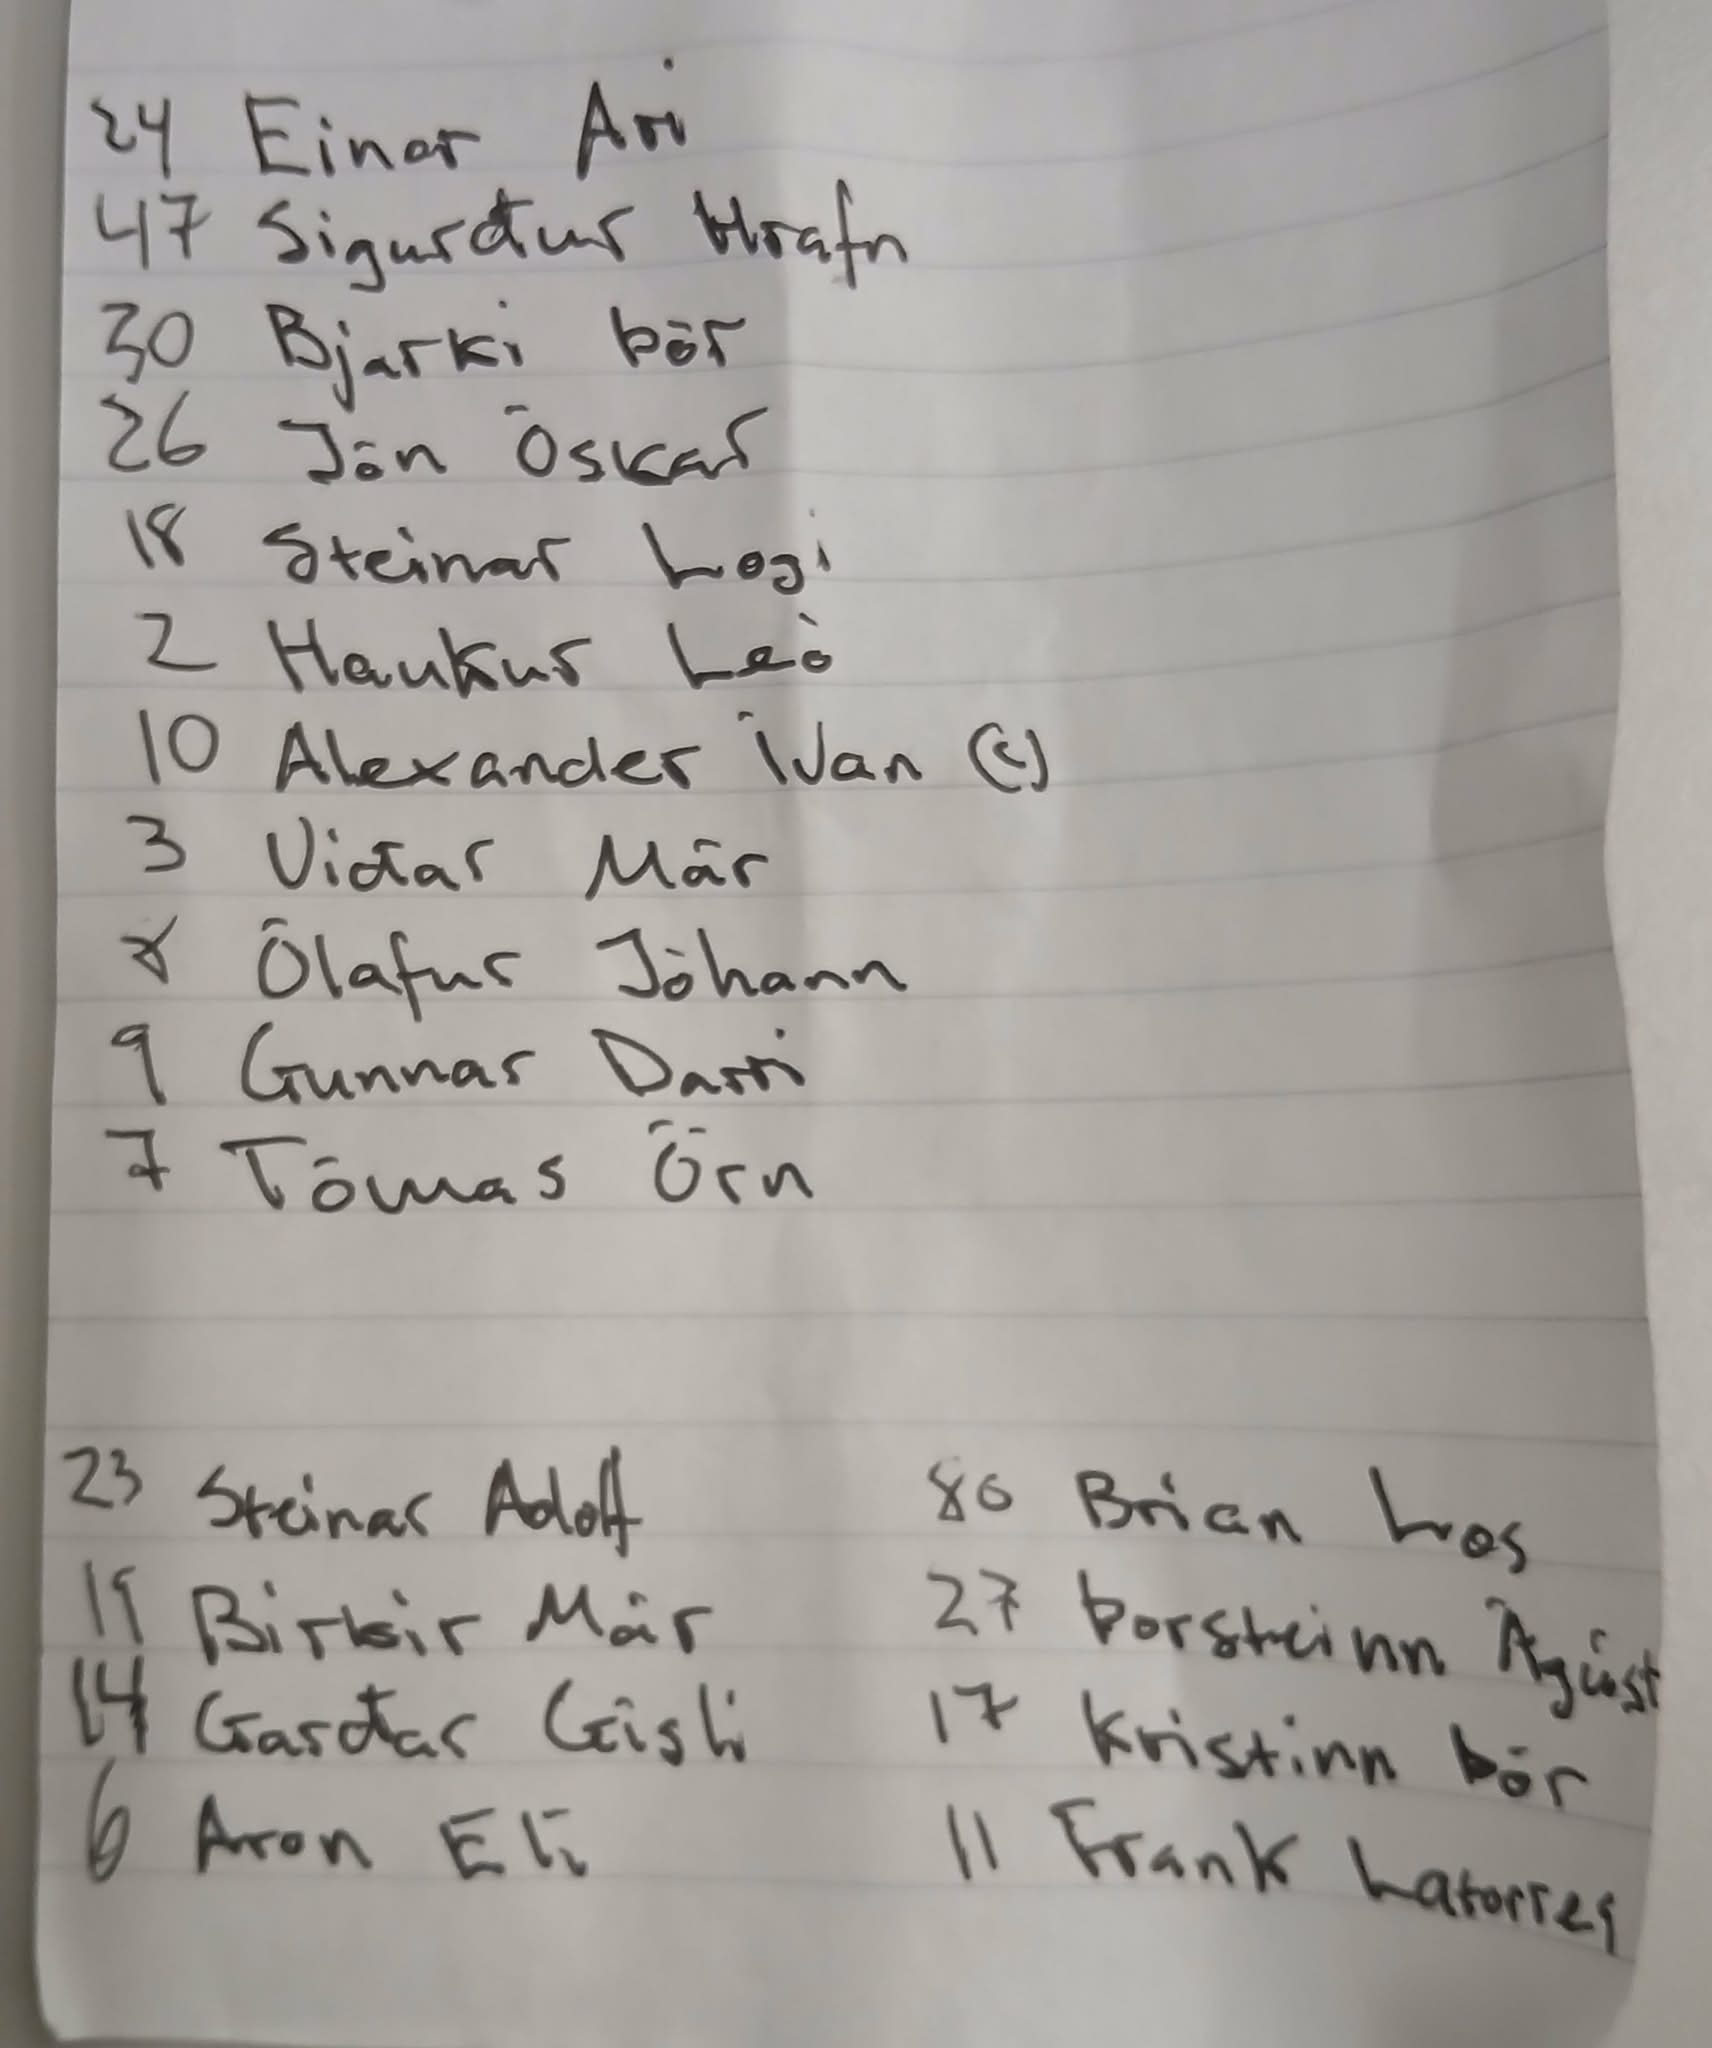 24 Einar Ari
47 Sigurður Hrafn
30 Bjarki Þór
26 Jón Óskar
18 Steinar Logi
2 Haukur Leó
10 Alexander Ívan (c)
3 Viðar Már
8 Ólafur Jóhann
9 Gunnar Darri
7 Tómas Örn
23 Steinar Adolf
19 Birkir Már
14 Garðar Gísli
6 Aron Elí
80 Brian Los
27 Þorsteinn Ágúst
17 Kristinn Þór
11 Frank Latorres